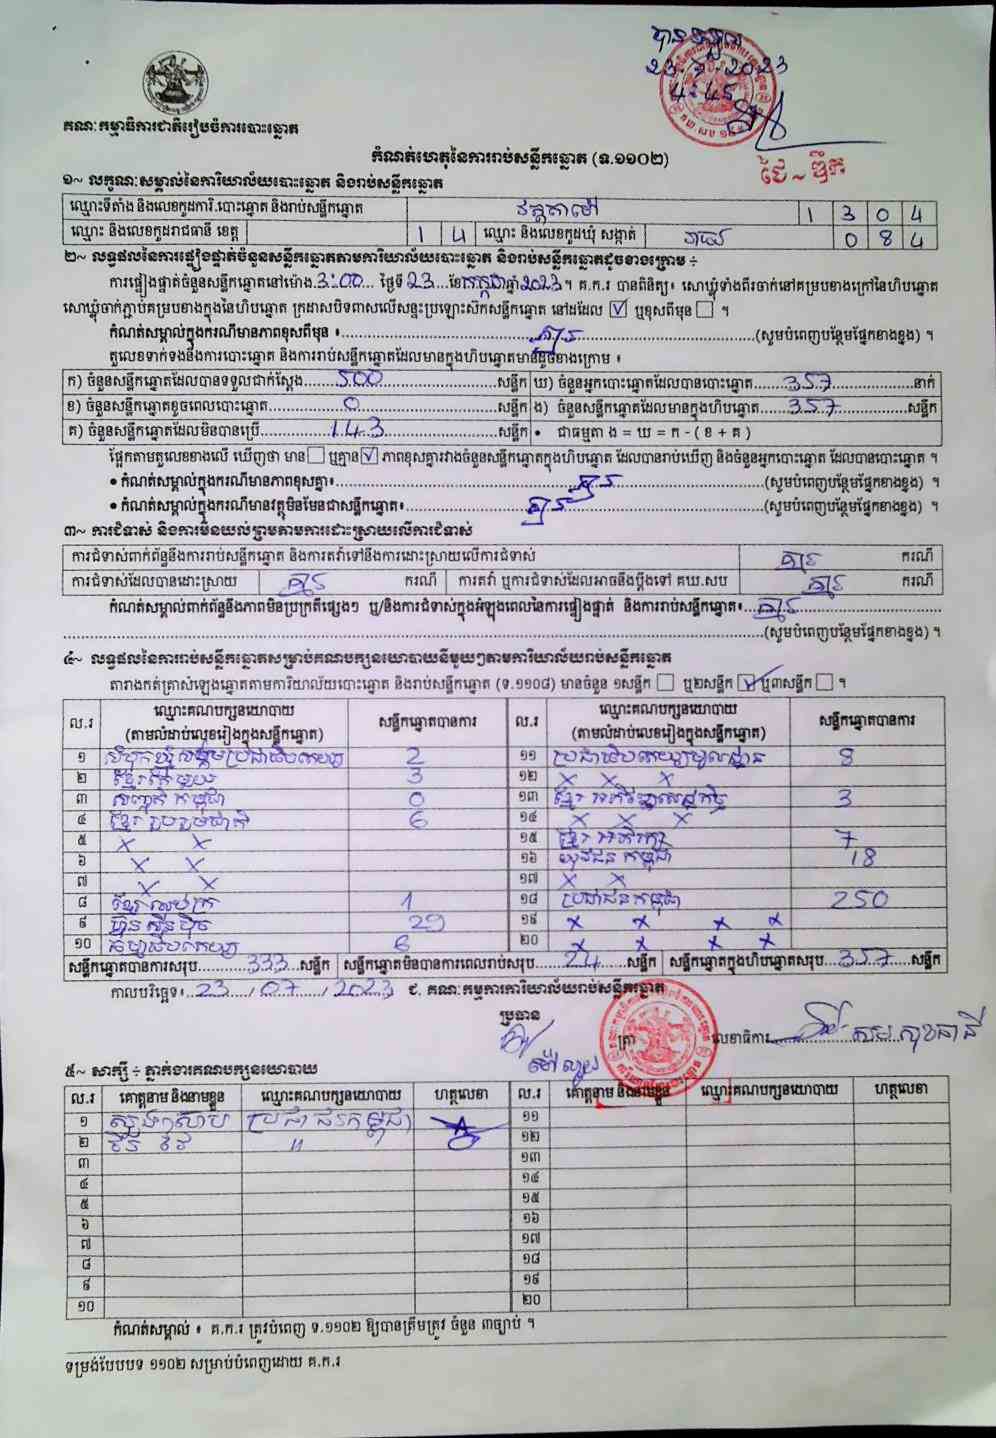 បានទទួល
23-7-2023
4:45
គណៈកម្មាធិការជាតិរៀបចំការបោះឆ្នោត
កំណត់ហេតុនៃការរាប់សន្លឹកឆ្នោត (ទ.១១០២)
១~ លក្ខណៈសម្គាល់នៃការិយាល័យបោះឆ្នោត និងរាប់សន្លឹកឆ្នោត
ឈ្មោះទីតាំង និងលេខកូដការិ.បោះឆ្នោត និងរាប់សន្លឹកឆ្នោត វត្តតាម៉ៅ 1 3 0 4
ឈ្មោះ និងលេខកូដរាជធានី ខេត្ត 1 4 ឈ្មោះ និងលេខកូដឃុំ សង្កាត់ 0 8 4
២~ លទ្ធផលនៃការផ្ទៀងផ្ទាត់ចំនួនសន្លឹកឆ្នោតតាមការិយាល័យបោះឆ្នោត និងរាប់សន្លឹកឆ្នោតដូចខាងក្រោម ÷
ការផ្ទៀងផ្ទាត់ចំនួនសន្លឹកឆ្នោតនៅម៉ោង 3:00 ថ្ងៃទី 23 ខែ កក្កដា ឆ្នាំ 2023 ។ គ.ក.រ បានពិនិត្យ៖ សោឃ្លុំទាំងពីរចាក់នៅគម្របខាងក្រៅនៃហិបឆ្នោត
សោឃ្លុំចាក់ភ្ជាប់គម្របខាងក្នុងនៃហិបឆ្នោត ក្រដាសបិទពាសលើសន្ទះប្រឡោះស៊កសន្លឹកឆ្នោត នៅដដែល ☑ ឬខុសពីមុន ☐ ។
កំណត់សម្គាល់ក្នុងករណីមានភាពខុសពីមុន ៖ គ្មាន (សូមបំពេញបន្ថែមផ្នែកខាងខ្នង) ។
តួលេខទាក់ទងនឹងការបោះឆ្នោត និងការរាប់សន្លឹកឆ្នោតដែលមានក្នុងហិបឆ្នោតមានដូចខាងក្រោម ៖
ក) ចំនួនសន្លឹកឆ្នោតដែលបានទទួលជាក់ស្តែង 500 សន្លឹក ឃ) ចំនួនអ្នកបោះឆ្នោតដែលបានបោះឆ្នោត 357 នាក់
ខ) ចំនួនសន្លឹកឆ្នោតខូចពេលបោះឆ្នោត 0 សន្លឹក ង) ចំនួនសន្លឹកឆ្នោតដែលមានក្នុងហិបឆ្នោត 357 សន្លឹក
គ) ចំនួនសន្លឹកឆ្នោតដែលមិនបានប្រើ 143 សន្លឹក • ជាធម្មតា ង = ឃ = ក - ( ខ + គ )
ផ្អែកតាមតួលេខខាងលើ ឃើញថា មាន ☐ ឬគ្មាន ☑ ភាពខុសគ្នារវាងចំនួនសន្លឹកឆ្នោតក្នុងហិបឆ្នោត ដែលបានរាប់ឃើញ និងចំនួនអ្នកបោះឆ្នោត ដែលបានបោះឆ្នោត ។
• កំណត់សម្គាល់ក្នុងករណីមានភាពខុសគ្នា៖ គ្មាន (សូមបំពេញបន្ថែមផ្នែកខាងខ្នង) ។
• កំណត់សម្គាល់ក្នុងករណីមានវត្ថុមិនមែនជាសន្លឹកឆ្នោត៖ គ្មាន (សូមបំពេញបន្ថែមផ្នែកខាងខ្នង) ។
៣~ ការជំទាស់ និងការមិនយល់ព្រមតាមការដោះស្រាយលើការជំទាស់
ការជំទាស់ពាក់ព័ន្ធនឹងការរាប់សន្លឹកឆ្នោត និងការតវ៉ាទៅនឹងការដោះស្រាយលើការជំទាស់ គ្មាន ករណី
ការជំទាស់ដែលបានដោះស្រាយ គ្មាន ករណី ការតវ៉ា ឬការជំទាស់ដែលអាចនឹងប្តឹងទៅ គឃ.សប គ្មាន ករណី
កំណត់សម្គាល់ពាក់ព័ន្ធនឹងភាពមិនប្រក្រតីផ្សេងៗ ឬ/និងការជំទាស់ក្នុងអំឡុងពេលនៃការផ្ទៀងផ្ទាត់ និងការរាប់សន្លឹកឆ្នោត៖ គ្មាន
(សូមបំពេញបន្ថែមផ្នែកខាងខ្នង) ។
៤~ លទ្ធផលនៃការរាប់សន្លឹកឆ្នោតសម្រាប់គណបក្សនយោបាយនីមួយៗតាមការិយាល័យរាប់សន្លឹកឆ្នោត
តារាងកត់ត្រាសំឡេងឆ្នោតតាមការិយាល័យបោះឆ្នោត និងរាប់សន្លឹកឆ្នោត (ទ.១១០៨) មានចំនួន ១សន្លឹក ☐ ឬ២សន្លឹក ☑ ឬ៣សន្លឹក ☐ ។
ល.រ ឈ្មោះគណបក្សនយោបាយ (តាមលំដាប់លេខរៀងក្នុងសន្លឹកឆ្នោត) សន្លឹកឆ្នោតបានការ ល.រ ឈ្មោះគណបក្សនយោបាយ (តាមលំដាប់លេខរៀងក្នុងសន្លឹកឆ្នោត) សន្លឹកឆ្នោតបានការ
១ សំបុកឃ្មុំសង្គមប្រជាធិបតេយ្យ 2 ១១ ប្រជាធិបតេយ្យមូលដ្ឋាន 8
២ ខ្មែរតែមួយ 3 ១២ X X X
៣ សញ្ជាតិកម្ពុជា 0 ១៣ ខ្មែរអភិវឌ្ឍន៍សេដ្ឋកិច្ច 3
៤ ខ្មែររួបរួមជាតិ 6 ១៤ X X X
៥ X X ១៥ ខ្មែរអភិរក្ស 7
៦ X X ១៦ យុវជនកម្ពុជា 18
៧ X X ១៧ X X
៨ ខ្មែរឈប់ក្រ 1 ១៨ ប្រជាជនកម្ពុជា 250
៩ ហ៊្វុនស៊ិនប៉ិច 29 ១៩ X X X X
១០ ធម្មាធិបតេយ្យ 6 ២០ X X X X
សន្លឹកឆ្នោតបានការសរុប 333 សន្លឹក សន្លឹកឆ្នោតមិនបានការពេលរាប់សរុប 24 សន្លឹក សន្លឹកឆ្នោតក្នុងហិបឆ្នោតសរុប 357 សន្លឹក
កាលបរិច្ឆេទ៖ 23 / 07 / 2023 ជ. គណៈកម្មការការិយាល័យរាប់សន្លឹកឆ្នោត
ប្រធាន
ត្រា លេខាធិការ
៥~ សាក្សី ÷ ភ្នាក់ងារគណបក្សនយោបាយ
ល.រ គោត្តនាម និងនាមខ្លួន ឈ្មោះគណបក្សនយោបាយ ហត្ថលេខា ល.រ គោត្តនាម និងនាមខ្លួន ឈ្មោះគណបក្សនយោបាយ ហត្ថលេខា
១ ប្រជាជនកម្ពុជា ១១
២ " ១២
៣ ១៣
៤ ១៤
៥ ១៥
៦ ១៦
៧ ១៧
៨ ១៨
៩ ១៩
១០ ២០
កំណត់សម្គាល់ ៖ គ.ក.រ ត្រូវបំពេញ ទ.១១០២ ឱ្យបានត្រឹមត្រូវ ចំនួន ៣ច្បាប់ ។
ទម្រង់បែបបទ ១១០២ សម្រាប់បំពេញដោយ គ.ក.រ